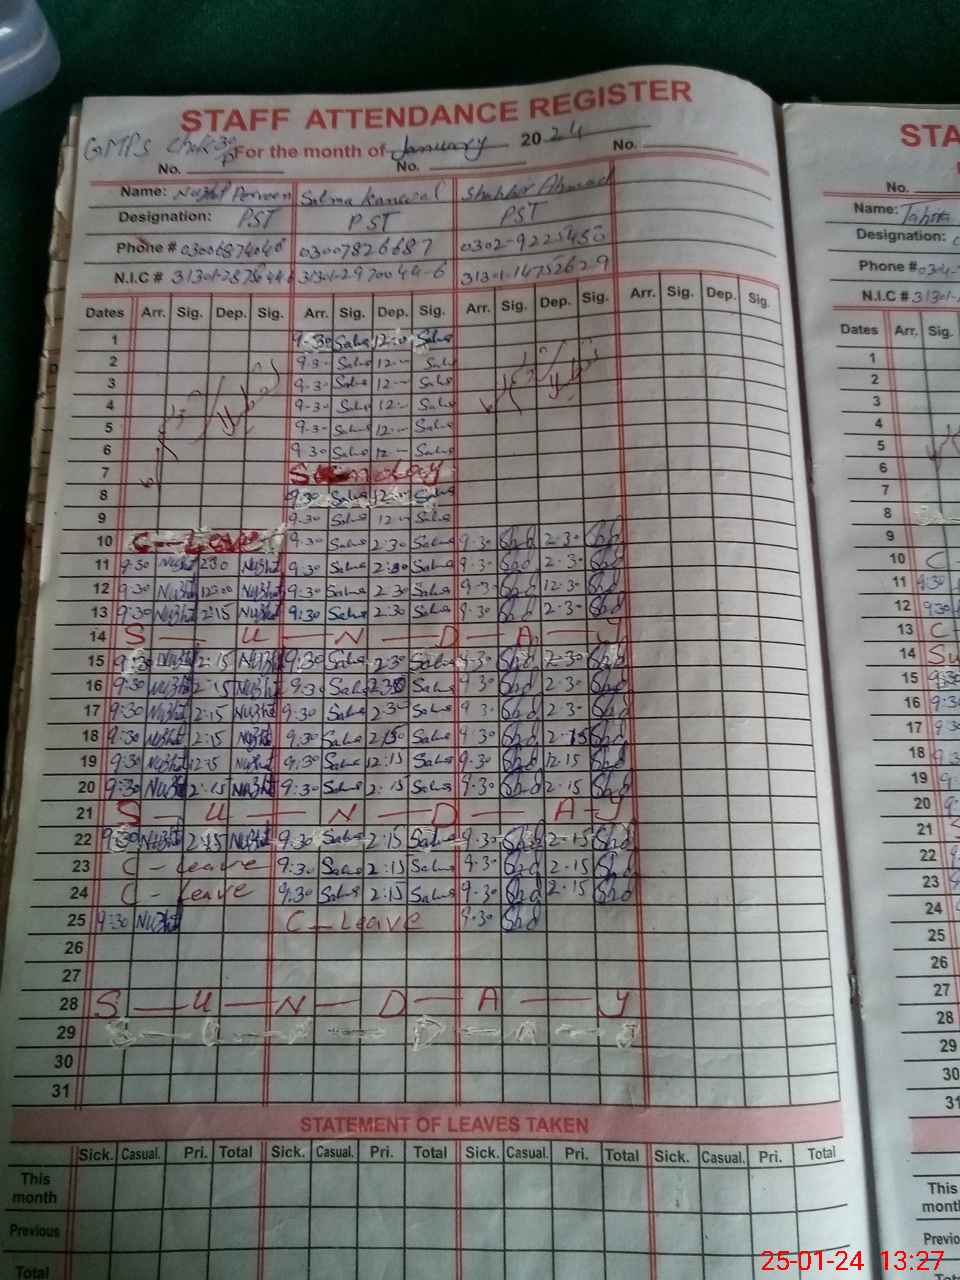 STAFF ATTENDANCE REGISTER
GMPS Chak 30 P For the month of January 2024 No.
No. No.
Name: Nuzhat Perveen Salma Kanwal Shabbir Ahmad
Designation: PST PST PST
Phone # 03006874046 03007826687 0302-9225458
N.I.C # 31301-1475262-9
Dates Arr. Sig. Dep. Sig. Arr. Sig. Dep. Sig. Arr. Sig. Dep. Sig. Arr. Sig. Dep. Sig.
1 9-30 Salma 12-30 Salma
2 9-30 Salma 12-- Salma
3 9-30 Salma 12-- Salma
4 9-30 Salma 12-- Salma
5 9-30 Salma 12-- Salma
6 9 30 Salma 12 -- Salma
7 Sunday
8 9.30 Salma 12-- Salma
9 9.30 Salma 12-- Salma
10 C-Leave 9.30 Salma 2:30 Salma 9.30 Shd 2-30 Shd
11 9:30 Nuzht 2:30 Nuzht 9:30 Salma 2:30 Salma 9.30 Shd 2-30 Shd
12 9:30 Nuzht 12:00 Nuzht 9:30 Salma 2.30 Salma 9-30 Shd 12-30 Shd
13 9:30 Nuzht 2:15 Nuzht 9:30 Salma 2:30 Salma 9.30 Shd 2-30 Shd
14 S — U — N — D — A — Y
15 9:30 Nuzht 2:15 Nuzht 9:30 Salma 2:30 Salma 9-30 Shd 2-30 Shd
16 9:30 Nuzht 2:15 Nuzht 9:30 Salma 2:30 Salma 9 30 Shd 2-30 Shd
17 9:30 Nuzht 2:15 Nuzht 9:30 Salma 2:30 Salma 9 30 Shd 2-30 Shd
18 9:30 Nuzht 2:15 Nuzht 9:30 Salma 2:150 Salma 9.30 Shd 2-15 Shd
19 9:30 Nuzht 12:15 Nuzht 9:30 Salma 12:15 Salma 9.30 Shd 12.15 Shd
20 9:30 Nuzht 2:15 Nuzht 9:30 Salma 2:15 Salma 9.30 Shd 2-15 Shd
21 S — U — N — D — A — Y
22 9:30 Nuzht 2:15 Nuzht 9.30 Salma 2:15 Salma 9.30 Shd 2-15 Shd
23 C - Leave 9:30 Salma 2:15 Salma 9.30 Shd 2-15 Shd
24 C - Leave 9:30 Salma 2:15 Salma 9.30 Shd 2-15 Shd
25 9:30 Nuzht C - Leave 9.30 Shd
26
27
28 S — U — N — D — A — Y
29
30
31
STATEMENT OF LEAVES TAKEN
Sick. Casual. Pri. Total Sick. Casual. Pri. Total Sick. Casual. Pri. Total Sick. Casual. Pri. Total
This month
Previous
Total
STA
No.
Name: Tahira
Designation:
Phone #
N.I.C # 31301-
Dates Arr. Sig.
1
2
3
4
5
6
7
8
9
10 C -
11 9:30
12 9:30
13 C -
14 Su
15 9:30
16 9:30
17 9:30
18 9:30
19
20
21
22
23
24
25
26
27
28
29
30
31
This
mont
Previo
Tot
25-01-24 13:27